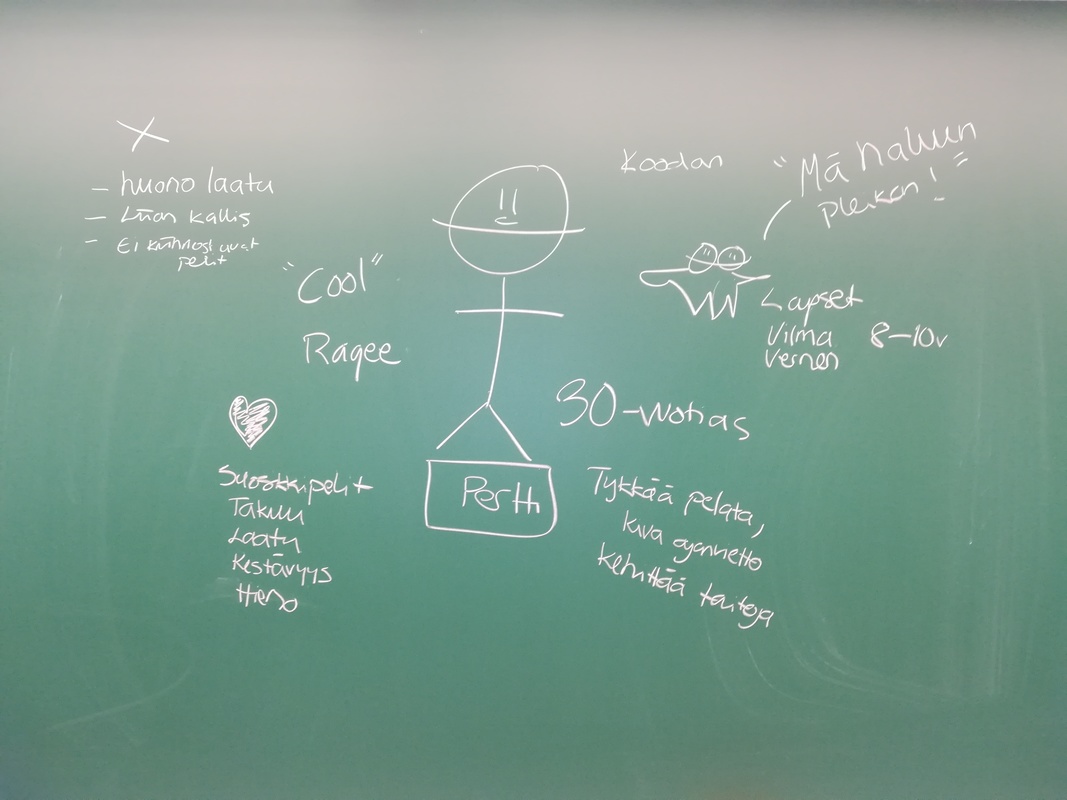 - huono laatu
- Liian kallis
- Ei kiinnostavat
pelit
"Cool"
Ragee
Suosikkipelit
Takuu
Laatu
Kestävyys
Hieno
Koodan
"Mä haluun
pleikan!"
Lapset
Vilma 8-10v
Verneri
30-vuotias
Tykkää pelata,
kiva ajanvietto
kehittää taitoja